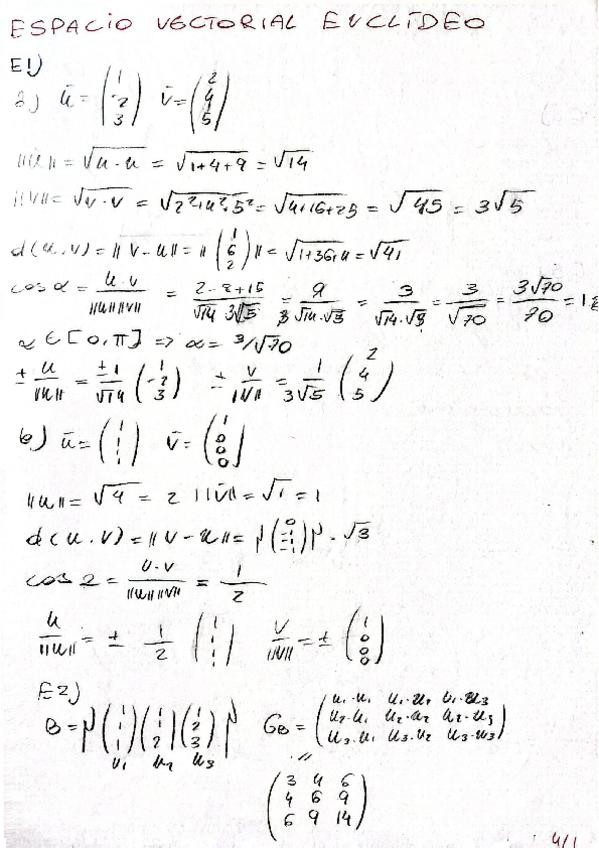 ESPACIO VECTORIAL EUCLÍDEO
E1)
a) ū = (1 -2 3) v̄ = (2 4 5)
||u|| = √u·u = √1+4+9 = √14
||v|| = √v·v = √2²+4²+5² = √4+16+25 = √45 = 3√5
d(u,v) = ||v-u|| = ||(1 6 2)|| = √1+36+4 = √41
cos α = u·v/||u||||v|| = 2-8+15/√14 3√5 = 9/3√14·√5 = 3/√14·√5 = 3/√70 = 3√70/70 =
α ∈ [0, π] => α = 3/√70
± u/||u|| = ±1/√14 (1 -2 3) ± v/||v|| = 1/3√5 (2 4 5)
b) ū = (1 1 1 1) v̄ = (1 0 0 0)
||u|| = √4 = 2 ||v̄|| = √1 = 1
d(u,v) = ||v-u|| = ||(0 -1 -1 -1)|| = √3
cos α = u·v/||u||||v|| = 1/2
u/||u|| = ± 1/2 (1 1 1 1) v/||v|| = ± (1 0 0 0)
E2)
B = {(1 1 1) (1 1 2) (1 2 3)} G_B = (u₁·u₁ u₁·u₂ u₁·u₃
u₂·u₁ u₂·u₂ u₂·u₃
u₃·u₁ u₃·u₂ u₃·u₃)
u₁ u₂ u₃
=
(3 4 6
4 6 9
6 9 14)
4/1